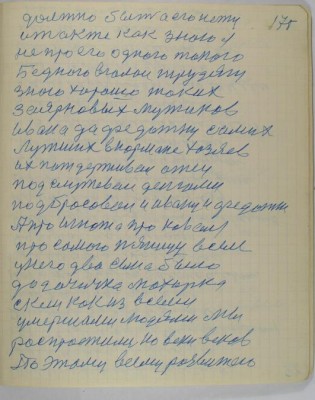 175
должно быть а его нету
и так же как знаю я
не про его одного такого
бедного вголои трудягу
знаю хорошо таких
зеярновых мужиков
ивана да федотку самих
лутших вкормане хозяев
их поддерживал отец
под снутевал денгами
подбросовал и ивану и федотки
А про игната про ковал
про самого пяницу всем
унего два сына было
да дочичка махорка
скем как из всеми
умершами людями мы
распростили на веки веков
По этому всему розвитею